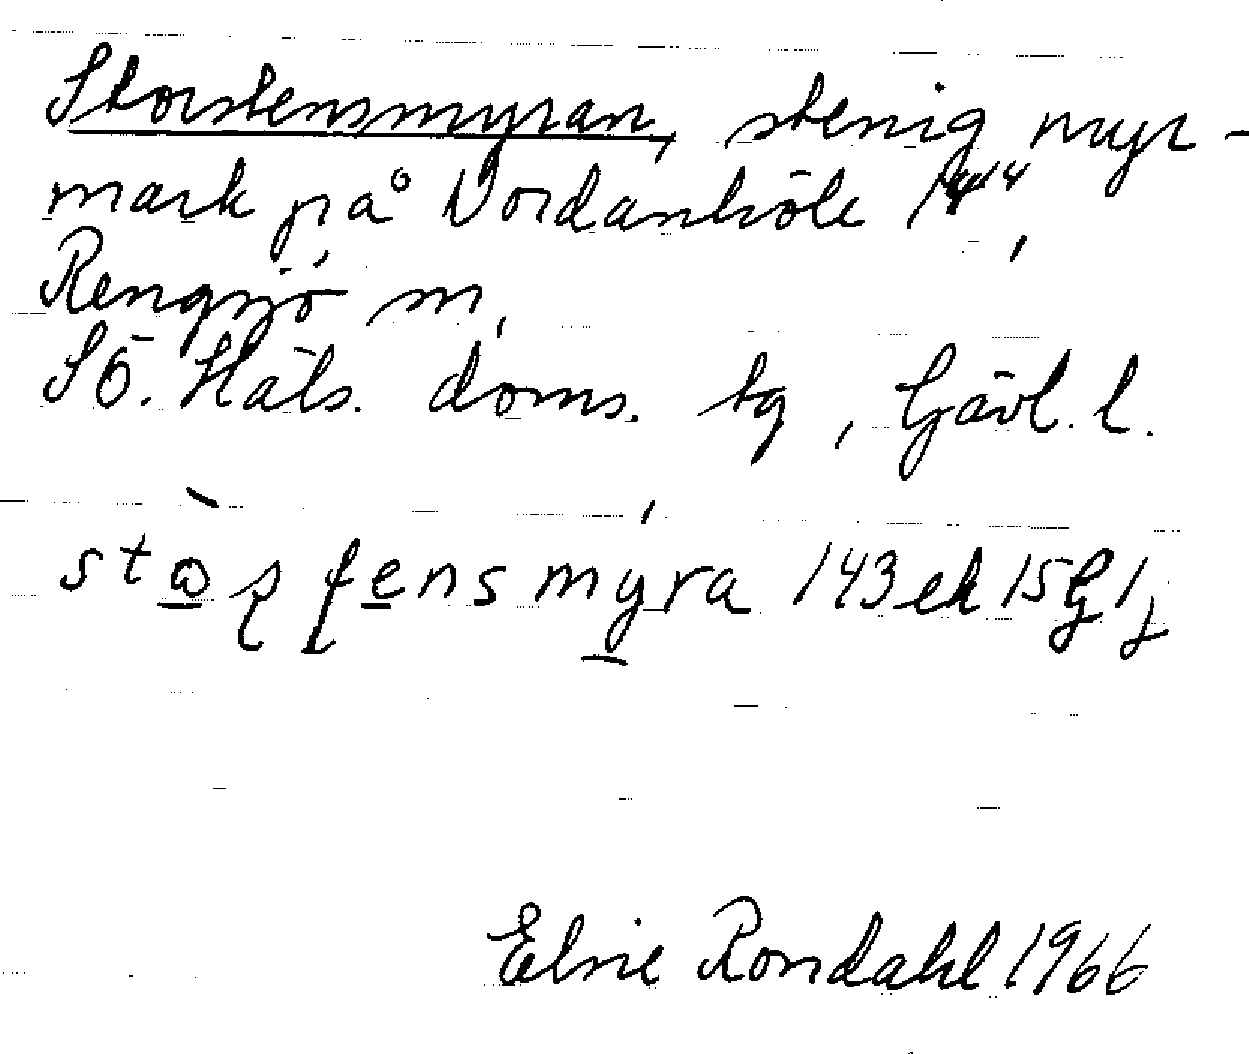 Storstensmyran, stenig myr-
mark på Nordanhöle 14⁴,
Rengsjö sn,
Sö. Häls. doms. tg, Gävl. l.
stɷ̀ʂʈensmýra 143 ek 15 G 1 j
Elsie Rondahl 1966